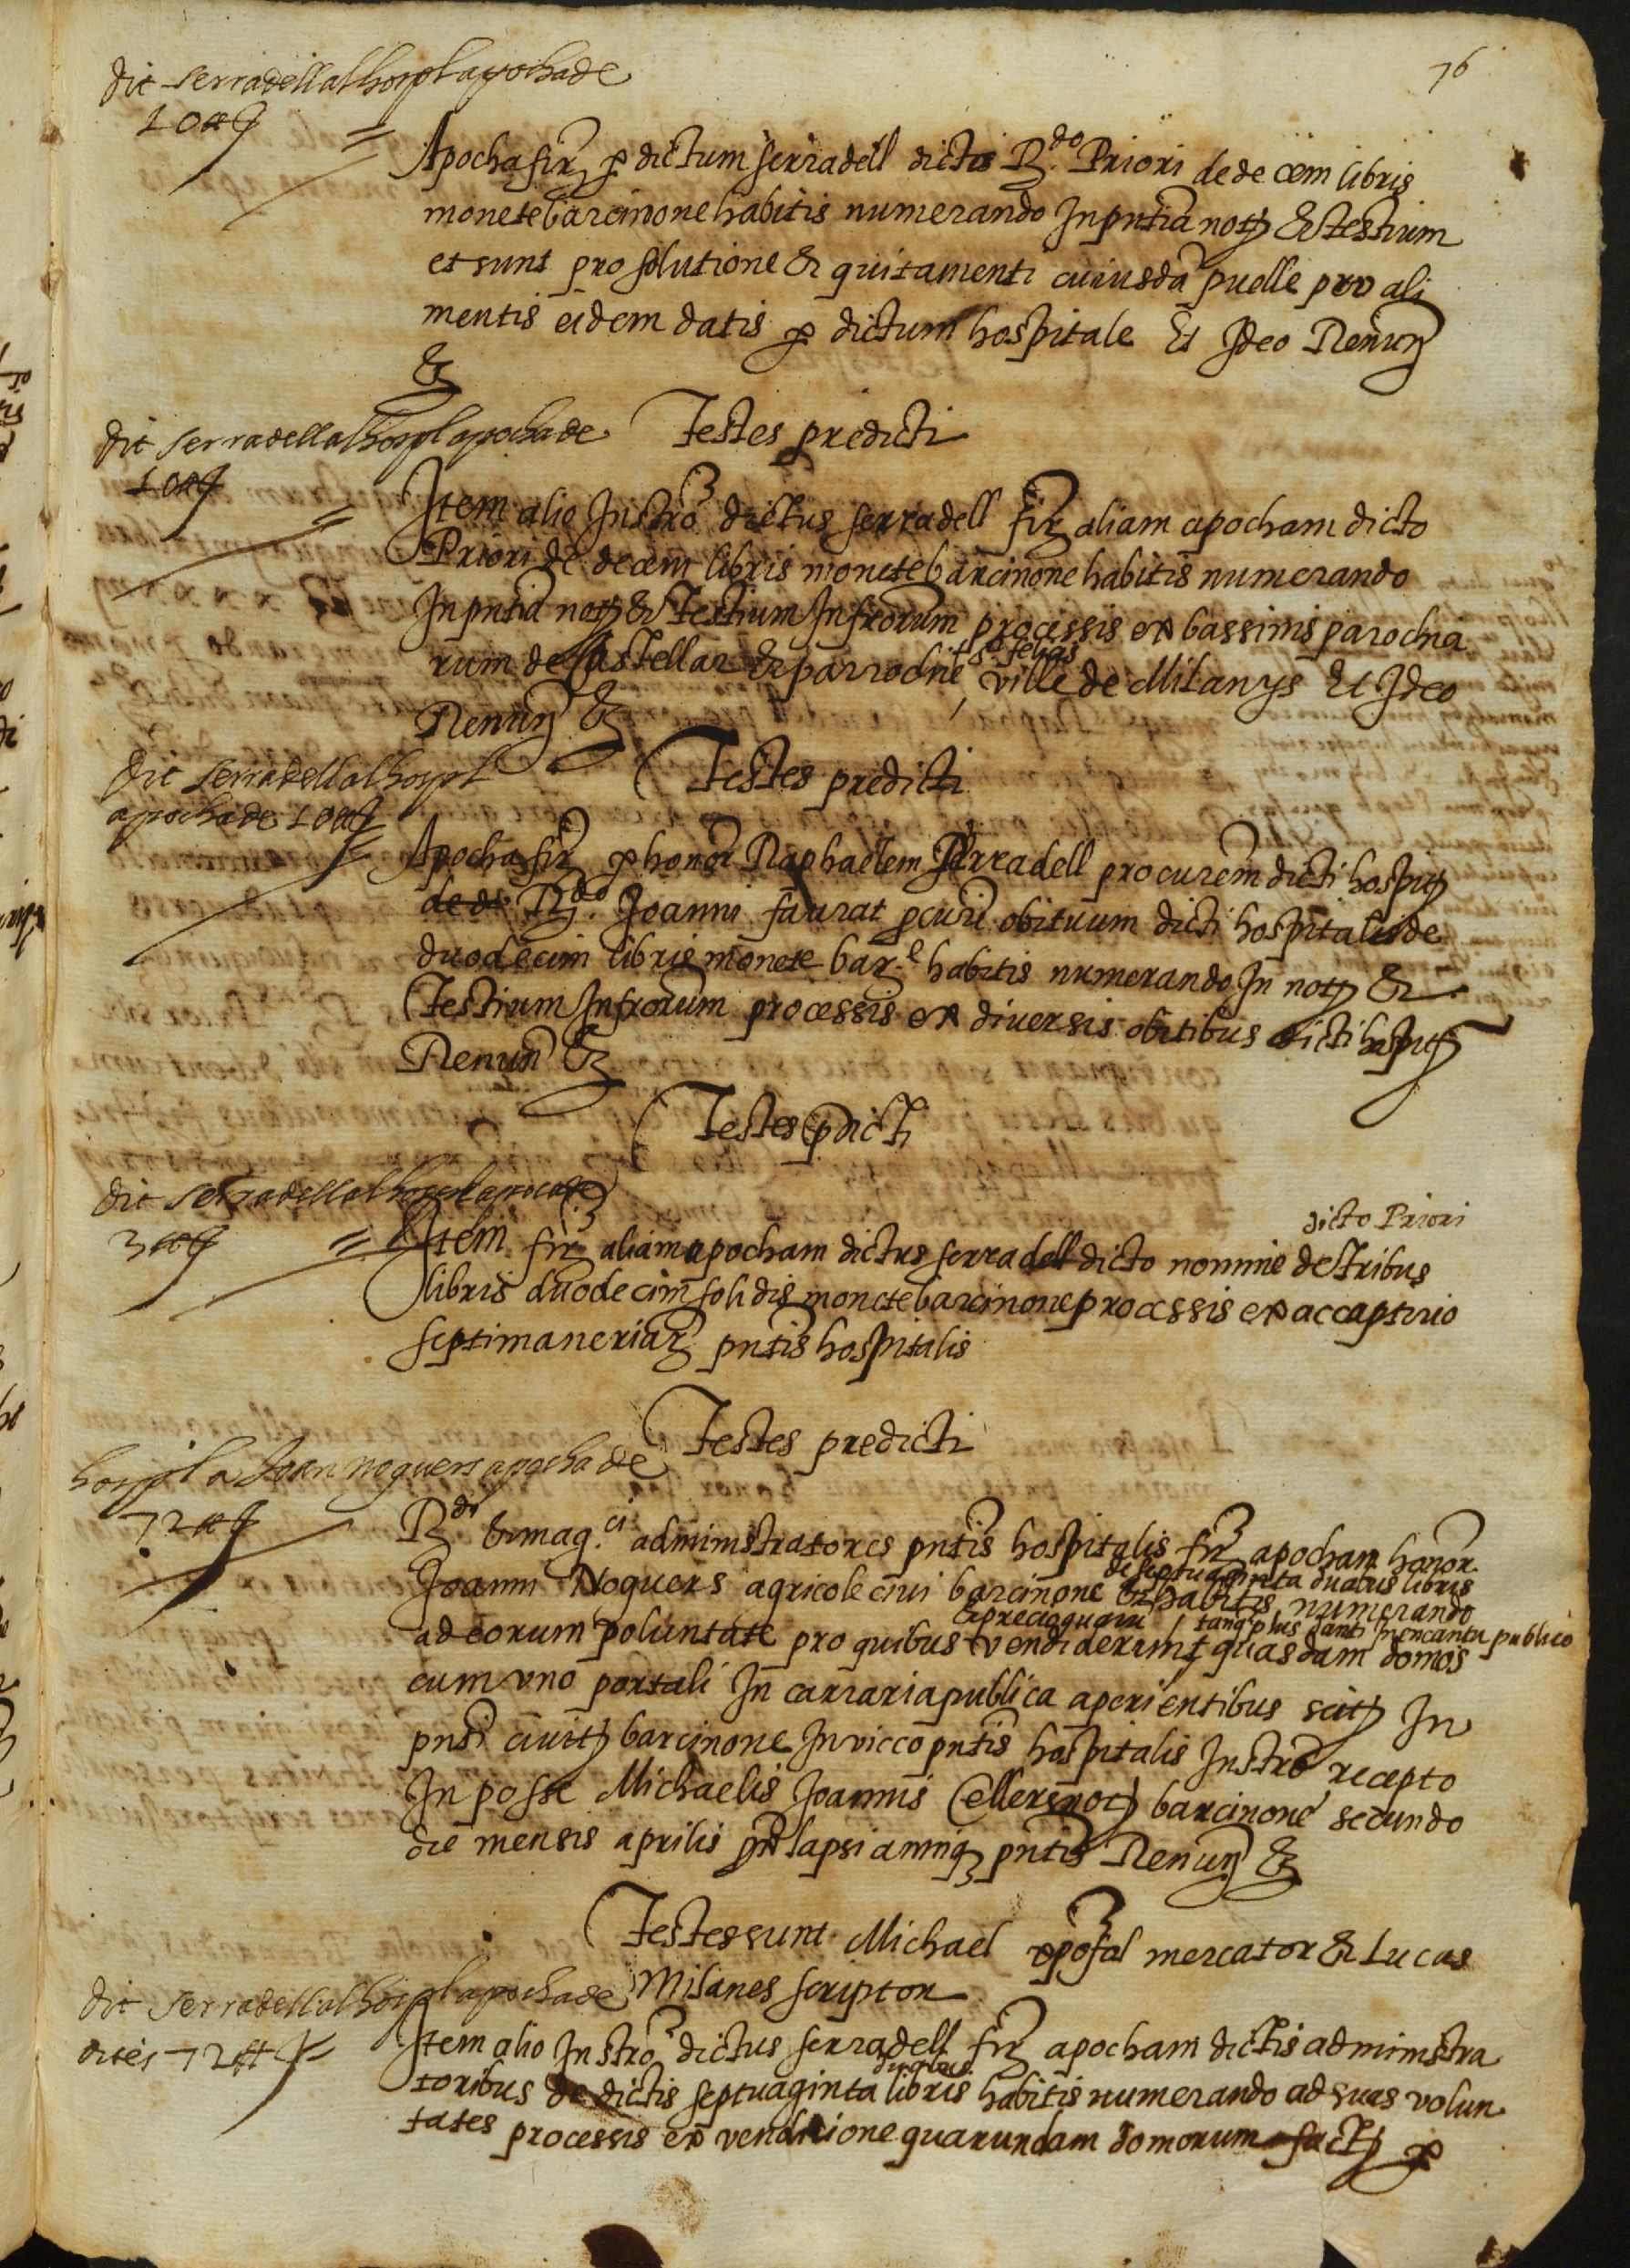 76
dit serradell al hospl apocha de
10 ₶
Apocha firᵉ p dictum serradell dicto R.do Priori de decem libris
monete barcinone habitis numerando In pntia noty & testium
et sunt pro solutione & quitamenti cuiusda puelle pro ali
mentis eidem datis p dictum hospitale Et Ideo Renun
&
Testes predicti
dit serradell al hospl apocha de
10 ₶
Item alio Instro dictus serradell fir aliam apocham dicto
Priori de decem libris monete barcinone habitis numerando
In pntia noty & testium Infrorum processis ex bassinis parochia
rum de Castellar & parrochie ste felias ville de Milanys Et Ideo
Renun &
Testes predicti
dit serradell al hospl
apocha de 10 ₶
Apocha fir p honor Raphaelem Serradell procurem dicti hospity
de di R.do Joanni faurat pcuri obituum dicti hospitalis de
duodecim libris monete bar.e habitis numerando In noty &
Testium Infrorum processis ex diversis obitibus dicti hospity
Renun &
Testes pdicti
dit serradell al hospl apoca de
3 ₶
dicto Priori
Item fir aliam apocham dictus serradell dicto nomine de tribus
libris duodecim solidis monete barcinone processis ex accaptirio
septimaneriar pntis hospitalis
Testes predicti
hospl a Joan noguers apocha de
72 ₶
R.di & mag.ci administratores pntis hospitalis fir apocham honor
Joanni Noguers agricole civi barcinone de septuaginta duabus libris & habitis numerando
ad eorum voluntate pro quibus & precio quarum vendiderunt tanq plus danti In encantu publico quasdam domos
cum uno portali In carraria publica aperientibus scity In
pnti civity barcinone In vicco pntis hospitalis Instro recepto
In posse Michaelis Joannis Celleres noty barcinone secundo
die mensis aprilis prolapsi anniq pntis Renun &
Testes sunt Michael mercator & Lucas
Milanes scriptor
dit serradell al hospl apocha de
dites 72 ₶
Item alio Instro dictus serradell fir apocham dictis administra
toribus de dictis septuaginta duabus libris habitis numerando ad suas volun
tates processis ex venditione quarundam domorum facty p